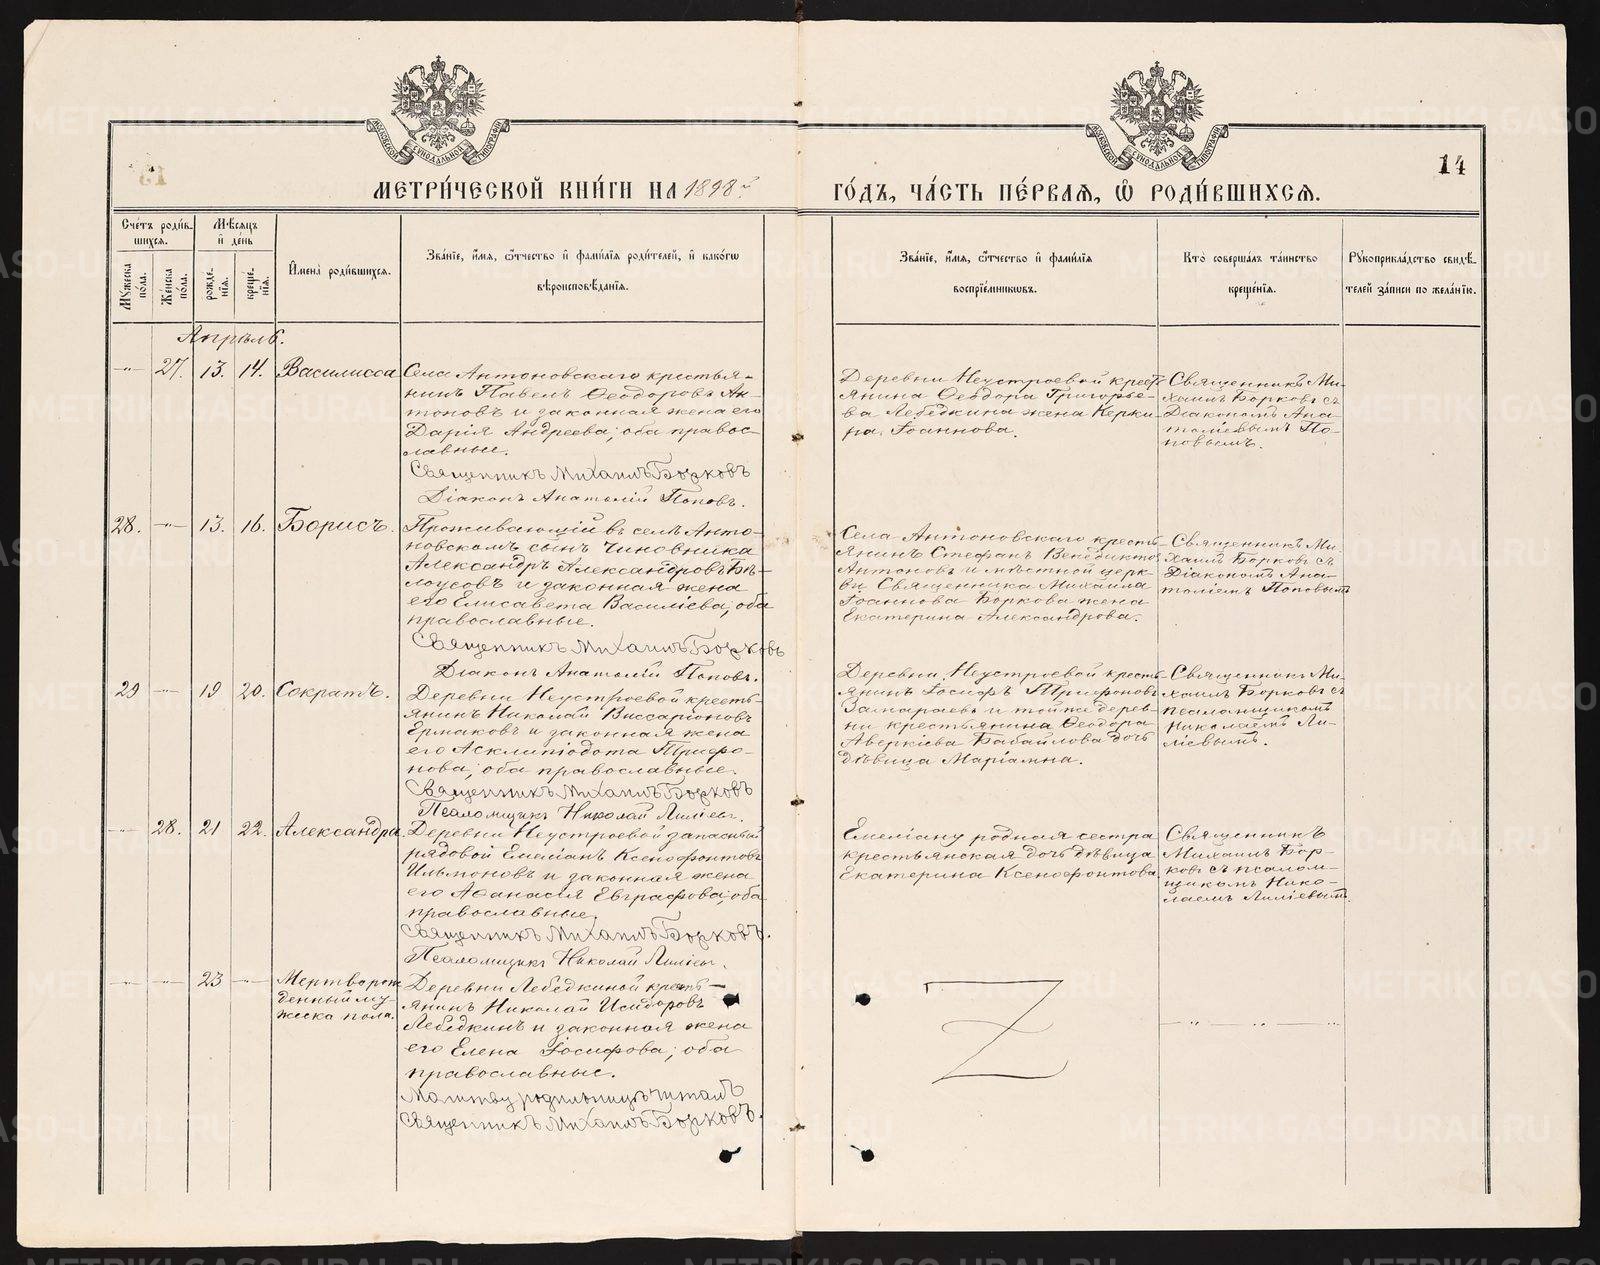 14
МЕТРИ́ЧЕСКОЙ КНИ́ГИ НА 1898 й
ГО́ДЪ, ЧА́СТЬ ПЕ́РВАѦ, Ѿ РОДИ́ВШИХСѦ.
Сче́тъ роди́в-
шихсѧ.
Мѣ́сѧцъ
и҆ де́нь
Имена̀ роди́вшихсѧ.
Зва́нїе, и҆́мѧ, ѻ҆́тчество и҆ фами́лїѧ роди́телей, и҆ како́гѡ
вѣроисповѣ́данїѧ.
Мꙋ́жеска
по́ла.
Же́нска
по́ла.
рожде́-
нїѧ.
креще́-
нїѧ.
Зва́нїе, и҆́мѧ, ѻ҆́тчество и҆ фами́лїѧ
воспрїе́мникѡвъ.
Кто̀ соверша́лъ та́инство
креще́нїѧ.
Рꙋкоприкла́дство свидѣ́-
телей за́писи по жела́нїю.
Апрѣль.
-"- 27. 13. 14. Василисса
Села Антоновскаго крестья-
нинъ Павелъ Ѳеодоровъ Ан-
тоновъ и законная жена его
Дарія Андреева; оба правос-
лавные.
Священникъ Михаилъ Борковъ
Діаконъ Анатолій Поповъ.
Деревни Неустроевой крест-
янина Ѳеодора Григорье-
ва Лебедкина жена Керки-
ра Іоаннова.
Священникъ Ми-
хаилъ Борковъ съ
Діакономъ Ана-
толіевымъ По-
повымъ.
28. -"- 13. 16. Борисъ.
Проживающій въ селѣ Анто-
новскомъ сынъ чиновника
Александръ Александровъ Бѣ-
лоусовъ и законная жена
его Елисавета Василіева; оба
православные.
Священникъ Михаилъ Борковъ
Діаконъ Анатолій Поповъ.
Села Антоновскаго кресть-
янинъ Стефанъ Венедиктов
Антоновъ и мѣстной церк-
ви Священника Михаила
Іоаннова Боркова жена
Екатерина Александрова.
Священникъ Ми-
хаилъ Борковъ съ
Діакономъ Ана-
толіемъ Поповымъ
29 -"- 19 20. Сократъ.
Деревни Неустроевой кресть-
янинъ Николай Виссаріоновъ
Ермаковъ и законная жена
его Асклипіодота Трифо-
нова; оба православные.
Священникъ Михаилъ Борковъ
Псаломщикъ Николай Лиліевъ.
Деревни Неустроевой кресть-
янинъ Іосифъ Трифоновъ
Замараевъ и той же дерев-
ни крестьянина Ѳеодора
Аверкіева Бабайлова дочь
дѣвица Маріамна.
Священникъ Ми-
хаилъ Борковъ съ
псаломщикомъ
Николаемъ Ли-
ліевымъ.
-"- 28. 21 22. Александра
Деревни Неустроевой запасный
рядовой Емеліанъ Ксенофонтовъ
Ильмоновъ и законная жена
его Аѳанасія Евграфова; оба
православные.
Священникъ Михаилъ Борковъ.
Псаломщикъ Николай Лиліевъ.
Емеліану родная сестра
крестьянская дочь дѣвица
Екатерина Ксенофонтова
Священникъ
Михаилъ Бор-
ковъ съ псалом-
щикомъ Нико-
лаемъ Лиліевымъ.
-"- -"- 23 -"- Мертворож
денный му-
жеска пола.
Деревни Лебедкиной кресть-
янинъ Николай Исидоровъ
Лебедкинъ и законная жена
его Елена Іосифова; оба
православные.
Молитву родильницѣ читалъ
Священникъ Михаилъ Борковъ.